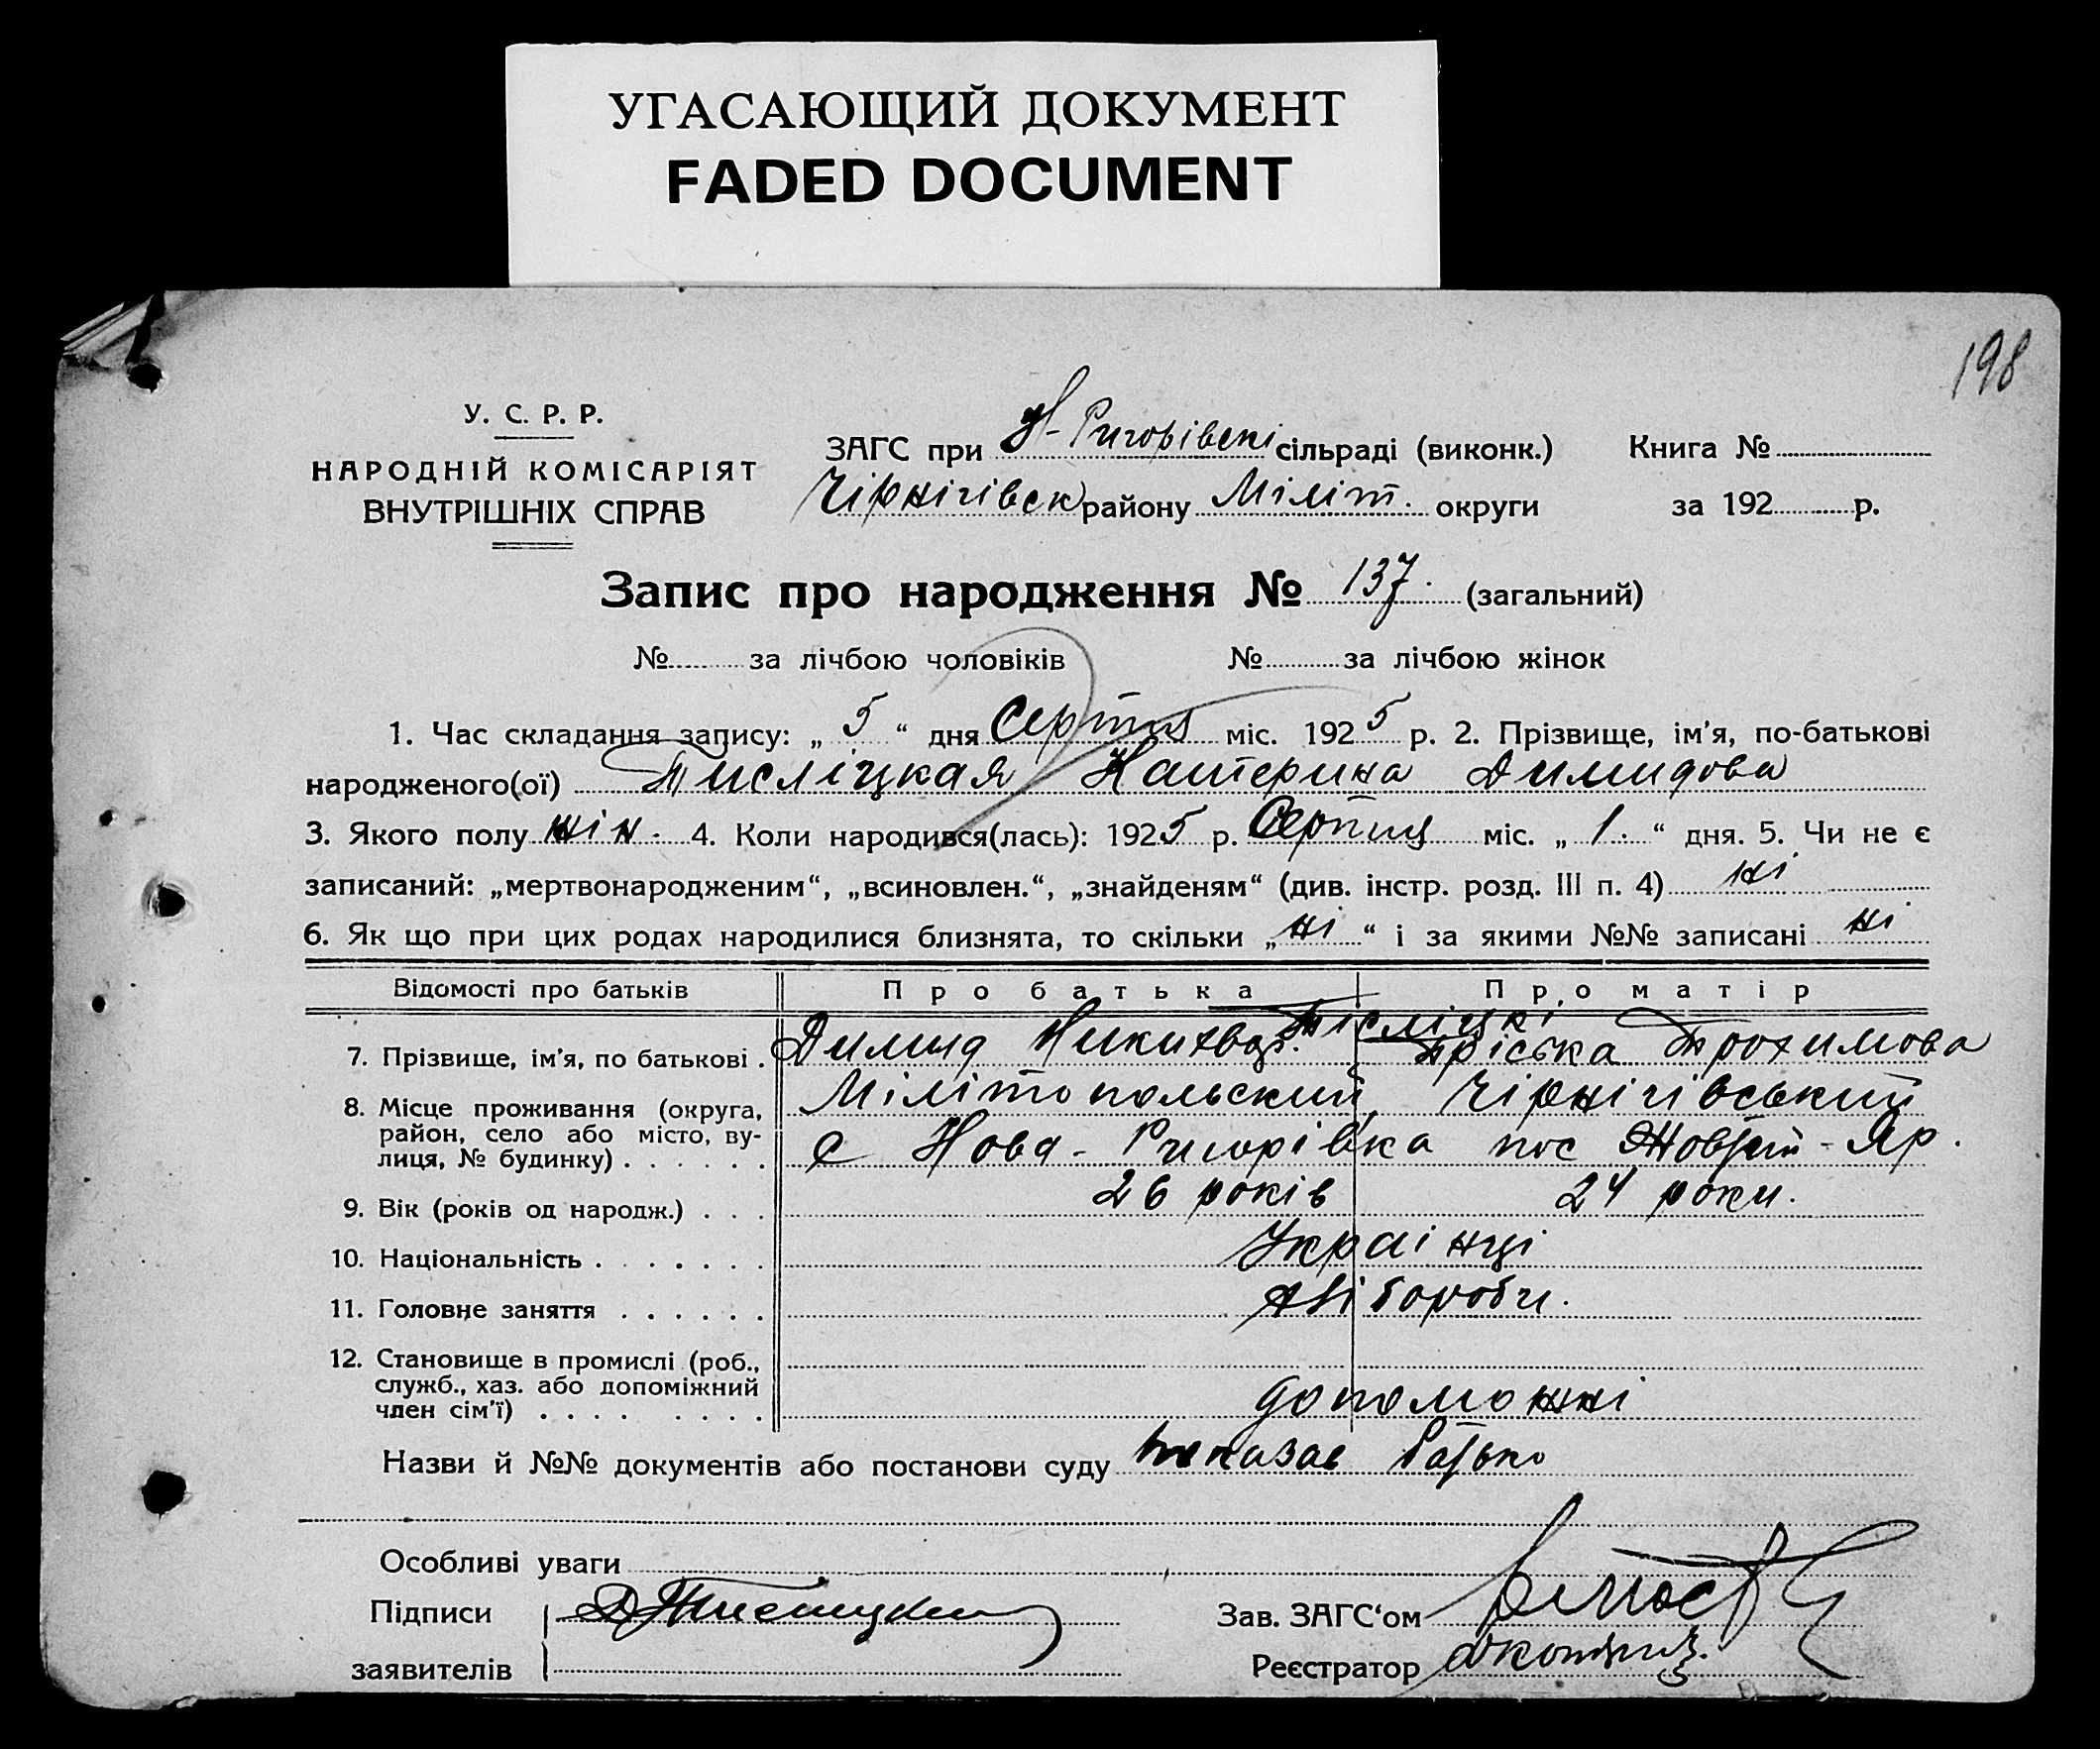 УГАСАЮЩИЙ ДОКУМЕНТ
FADED DOCUMENT
198
У. С. Р. Р.
НАРОДНІЙ КОМІСАРІЯТ
ВНУТРІШНІХ СПРАВ
ЗАГС при Н-Григорівскі сільраді (виконк.)
Чірнігівск району Міліт. округи
Книга №
за 192 р.
Запис про народження № 137. (загальний)
№ за лічбою чоловіків № за лічбою жінок
1. Час складання запису: „ 5 “ дня Серпня міс. 1925 р. 2. Прізвище, ім'я, по-батькові
народженого(ої) Тисліцкая Катерина Димидова
3. Якого полу жін. 4. Коли народився(лась): 1925 р. Серпня міс. „ 1. “ дня. 5. Чи не є
записаний: „мертвонародженим“, „всиновлен.“, „знайденям“ (див. інстр. розд. III п. 4) ні
6. Як що при цих родах народилися близнята, то скільки „ ні “ і за якими №№ записані ні
Відомості про батьків Про батька Про матір
Тисліцкі
7. Прізвище, ім'я, по батькові . Димид Пріська Трохимова
8. Місце проживання (округа, район, село або місто, вулиця, № будинку) . . . . . . Мілітопольский Чірнігівський
с Нова-Григорівка пос Жовтий-Яр.
9. Вік (років од народж.) . . . 26 років 24 роки.
10. Національність . . . . . . . Українці
11. Головне заняття . . . . . . хліборобы.
12. Становище в промислі (роб., служб., хаз. або допоміжний член сім'ї) . . . . . . . . допоможні
Назви й №№ документів або постанови суду показав батько
Особливі уваги
Підписи Д Тислицкий
заявителів
Зав. ЗАГС‘ом
Реєстратор